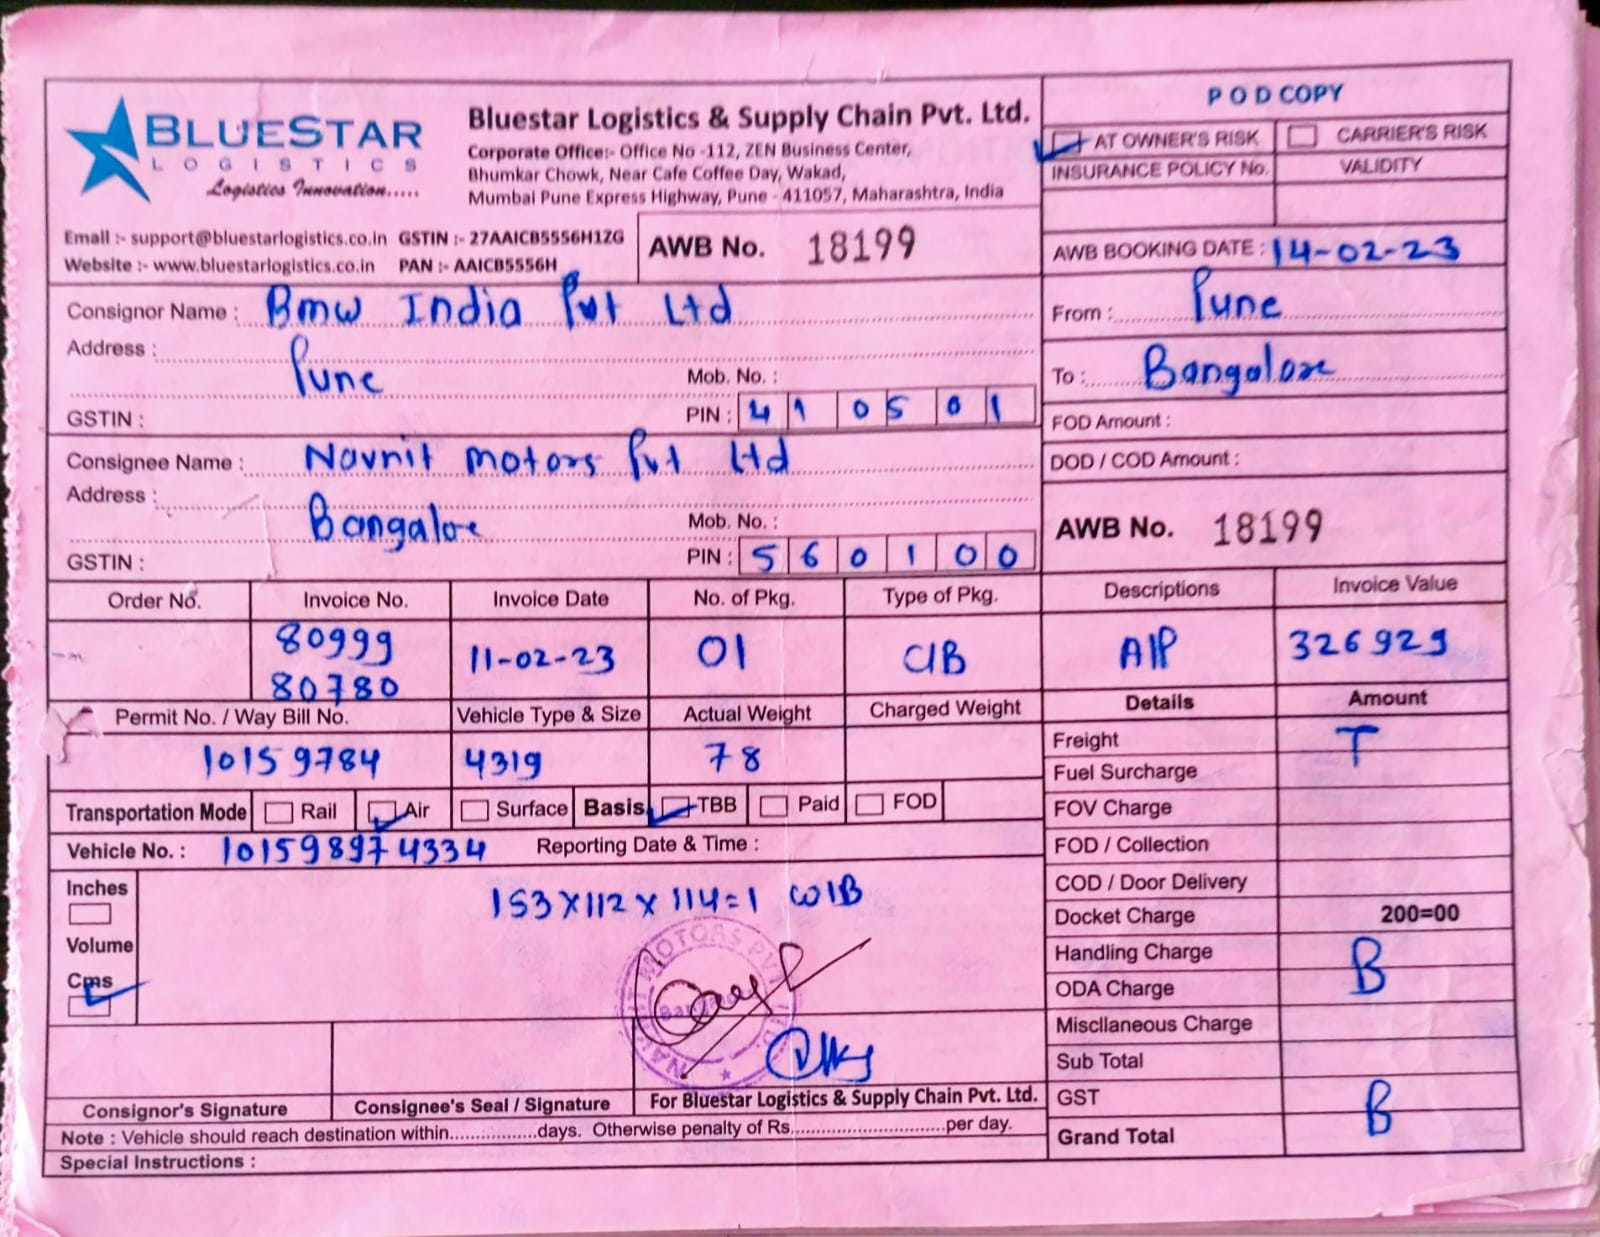 BLUESTAR
LOGISTICS
Logistics Innovation.....
Bluestar Logistics & Supply Chain Pvt. Ltd.
Corporate Office:- Office No -112, ZEN Business Center,
Bhumkar Chowk, Near Cafe Coffee Day, Wakad,
Mumbai Pune Express Highway, Pune - 411057, Maharashtra, India
Email :- support@bluestarlogistics.co.in GSTIN :- 27AAICB5556H1ZG
Website :- www.bluestarlogistics.co.in PAN :- AAICB5556H
AWB No. 18199
POD COPY
AT OWNER'S RISK CARRIER'S RISK
INSURANCE POLICY No. VALIDITY
AWB BOOKING DATE : 14-02-23
Consignor Name : Bmw India Pvt Ltd
Address :
Pune
Mob. No. :
GSTIN : PIN : 410501
From : Pune
To : Bangalore
FOD Amount :
DOD / COD Amount :
Consignee Name : Navnit Motors Pvt Ltd
Address :
Bangalore
Mob. No. :
GSTIN : PIN : 560100
AWB No. 18199
Order No. Invoice No. Invoice Date No. of Pkg. Type of Pkg. Descriptions Invoice Value
80999
80780
11-02-23 01 C/B A/P 326929
Permit No. / Way Bill No. Vehicle Type & Size Actual Weight Charged Weight
10159784 4319 78
Transportation Mode Rail Air Surface Basis TBB Paid FOD
Vehicle No. : 101598974334 Reporting Date & Time :
Inches
Volume
Cms
153x112x114=1 W/B
Details Amount
Freight T
Fuel Surcharge
FOV Charge
FOD / Collection
COD / Door Delivery
Docket Charge 200=00
Handling Charge B
ODA Charge
Miscllaneous Charge
Sub Total
GST B
Grand Total
Consignor's Signature Consignee's Seal / Signature For Bluestar Logistics & Supply Chain Pvt. Ltd.
Note : Vehicle should reach destination within.................days. Otherwise penalty of Rs..............................per day.
Special Instructions :